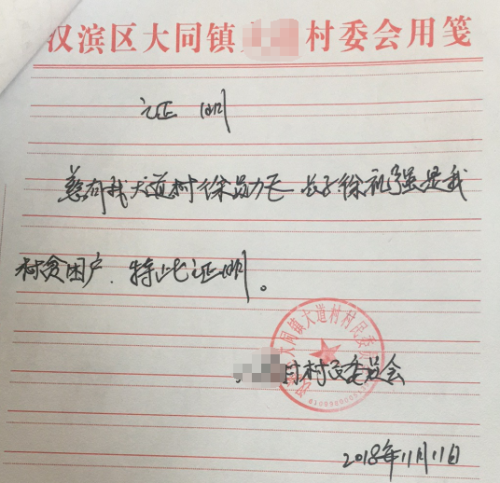 汉滨区大同镇 村委会用笺
证明
兹有我大道村徐 长子徐礼强是我
村贫困户、特此证明。
大同镇大道村村民委员会
村村民委员会
2018年11月11日